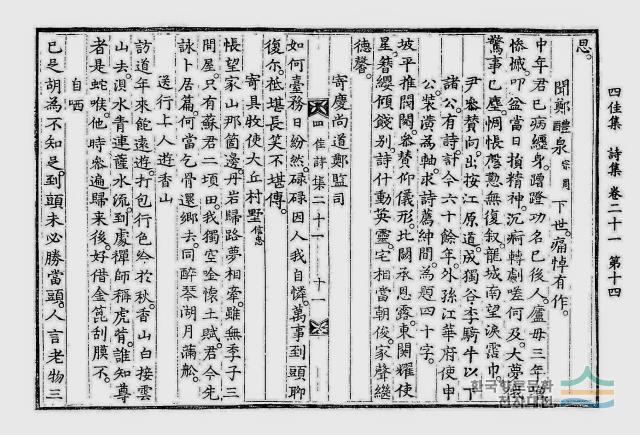 四佳集 詩集 卷二十一 第十四
思。
聞鄭醴泉 宗周 下世。痛悼有作。
中年君已病纏身。蹭蹬功名已後人。廬毋三年
慘慽。叩盆當日損精神。沉痾轉劇嗟何及。大夢俄
驚事已塵。惆悵慇懃無復叙。龍城南望淚霑巾。
尹參贊向。出按江原道。咸獨谷李騎牛以下
諸公有詩。計今六十餘年。外孫江華府使申
公裝潢爲軸。求詩薦紳間。爲題四十字。
坡平推閥閱。參贊仰儀形。北闕承恩露。東關耀使
星。簪纓傾餞別。詩什動英靈。宅相當朝俊。家聲繼
德馨。
寄慶尙道鄭監司
四佳詩集二十一 十一
如何臺務日紛然。碌碌因人我自憐。萬事到頭聊
復尓。秪堪長笑不堪傳。
寄具牧使大丘村墅 信忠
悵望家山那箇邊。丹岩歸路夢相牽。雖無季子三
間屋。只有蘇君二頃田。我獨空懷土賦。君今先
詠卜居篇。何當乞骨還鄕去。同醉琴湖月滿船。
送行上人遊香山
訪道年來飽遠遊。打包行色於秋。香山白接雲
山去。浿水靑連薩水流。到處禪師稱虎。誰知尊
者是蛇喉。他時參遍歸來後。好借金篦刮膜不。
自哂
已是胡爲不知足。到頭未必勝當頭。人言老物三
한국향토문화
전자대전